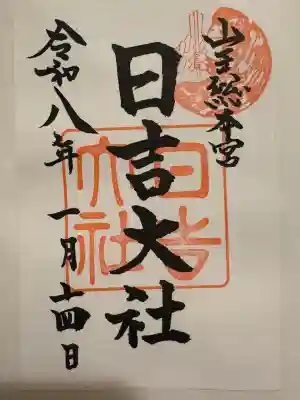 山王総本宮
日吉大社
日吉大社
令和八年一月十四日